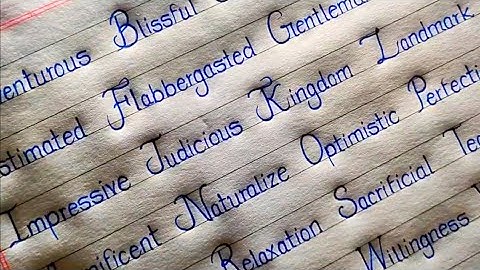 enturous Blissful
stimated Flabbergasted Gentlema
Impressive Judicious Kingdom Landmark
nificent Naturalize Optimistic Perfecti
Relaxation Sacrificial Te
Willingness